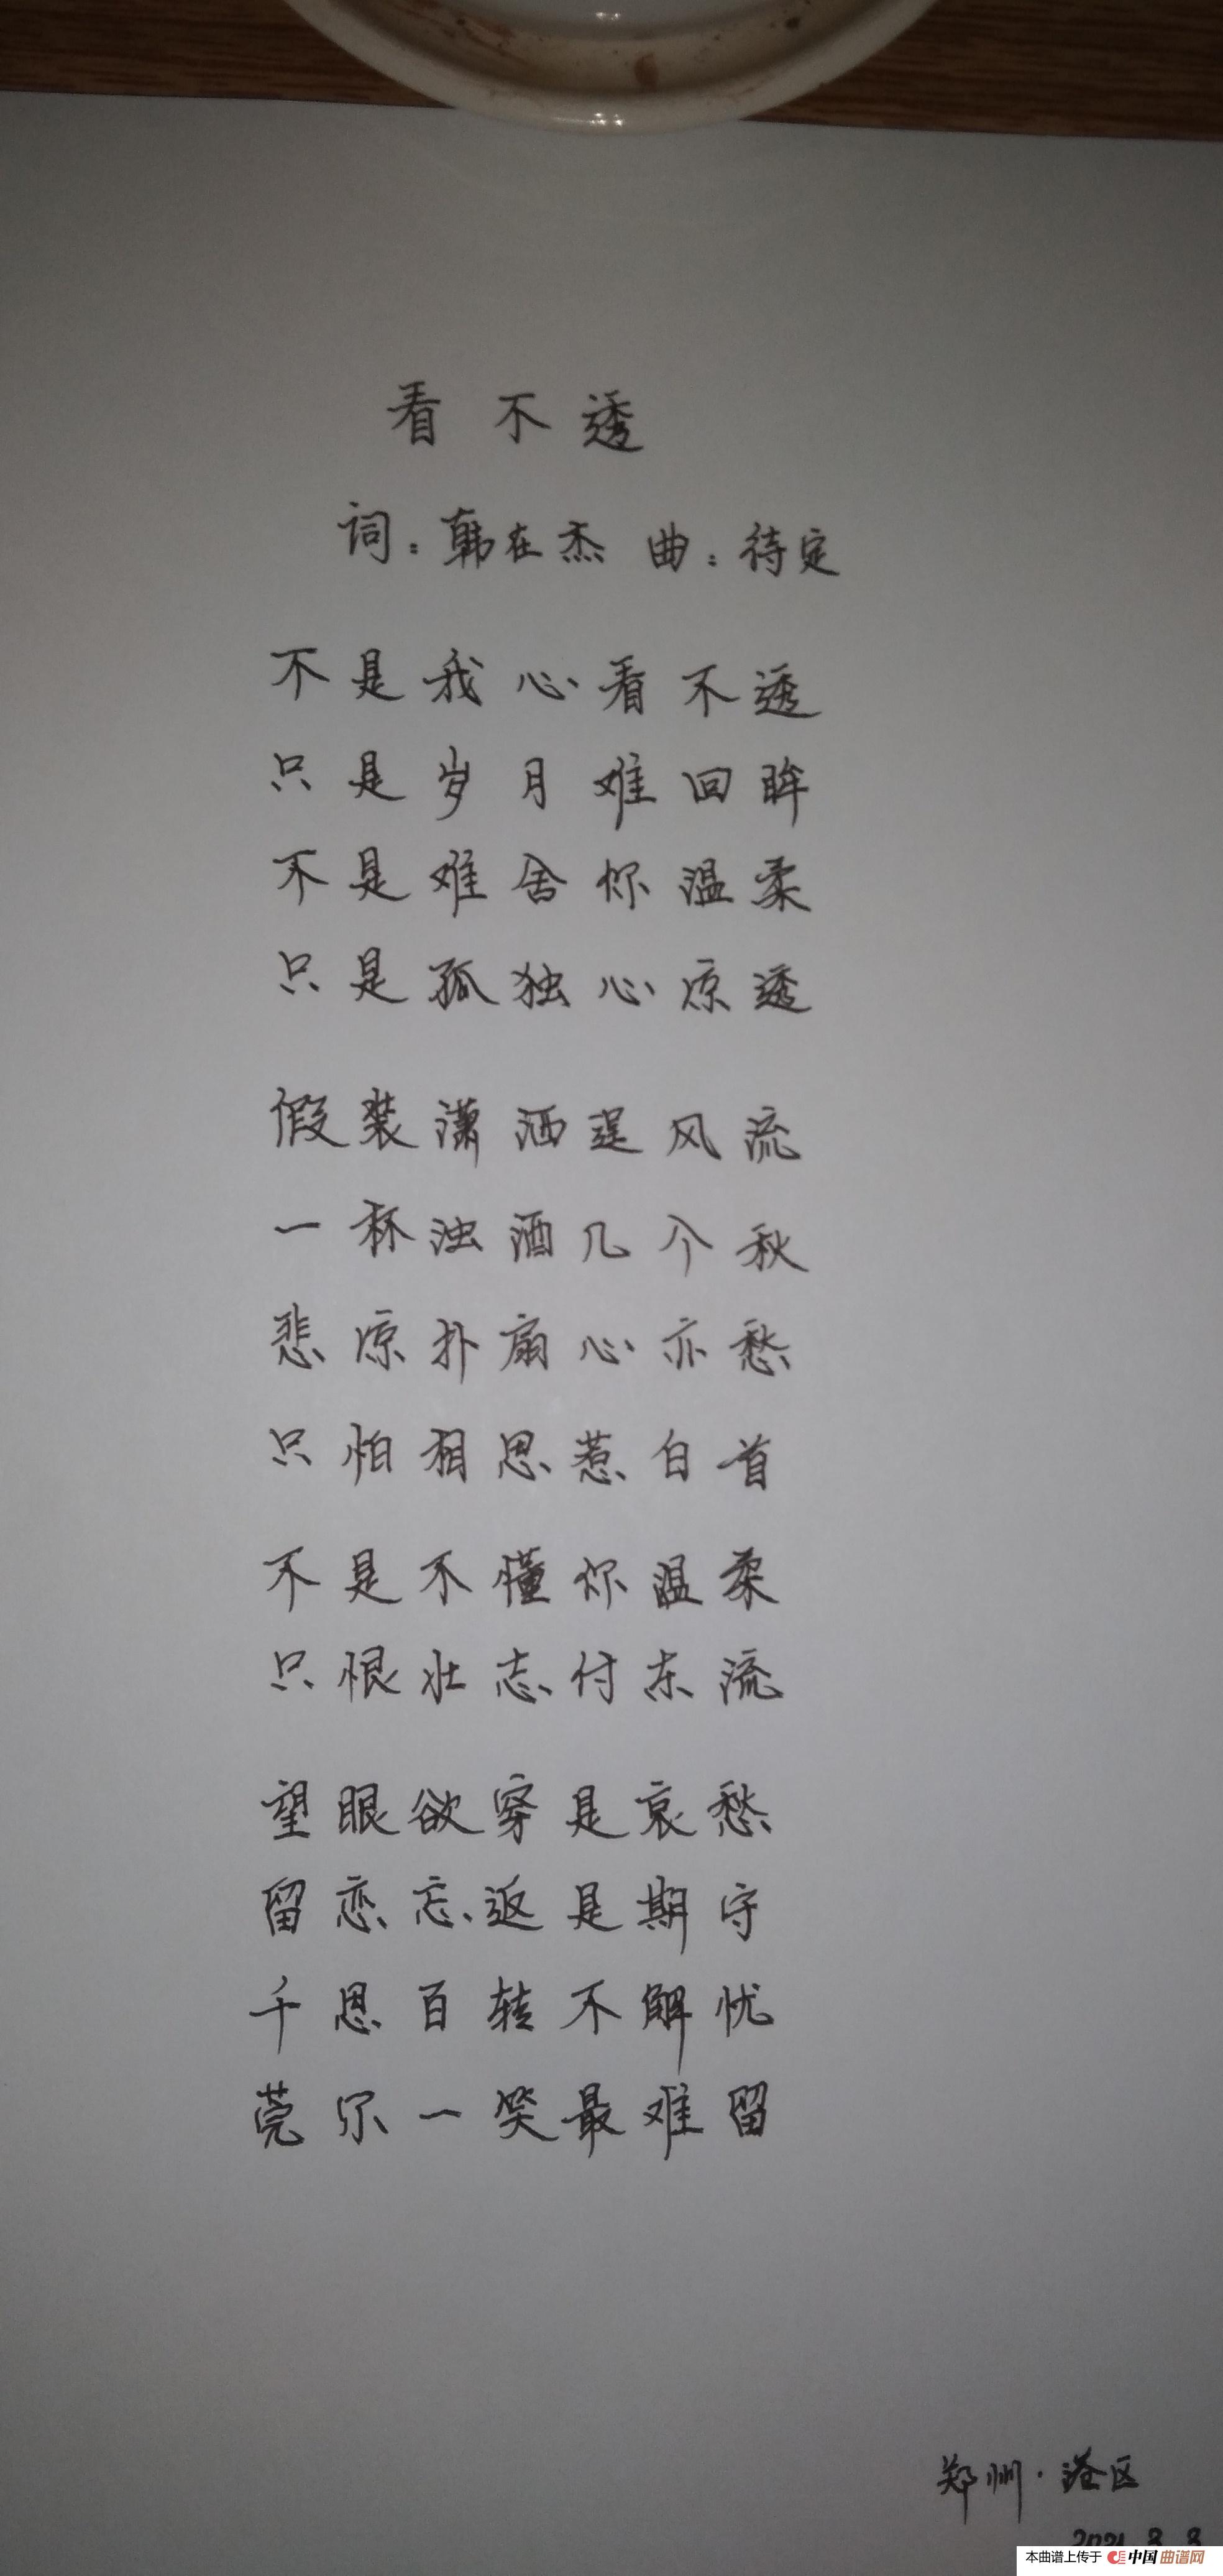 看不透
词：韩在杰 曲：待定
不是我心看不透
只是岁月难回眸
不是难舍你温柔
只是孤独心凉透
假装潇洒逞风流
一杯浊酒几个秋
悲凉扑扇心亦愁
只怕相思惹白首
不是不懂你温柔
只恨壮志付东流
望眼欲穿是哀愁
留恋忘返是期守
千思百转不解忧
莞尔一笑最难留
郑州·港区
2021.3.3
本曲谱上传于 中国曲谱网